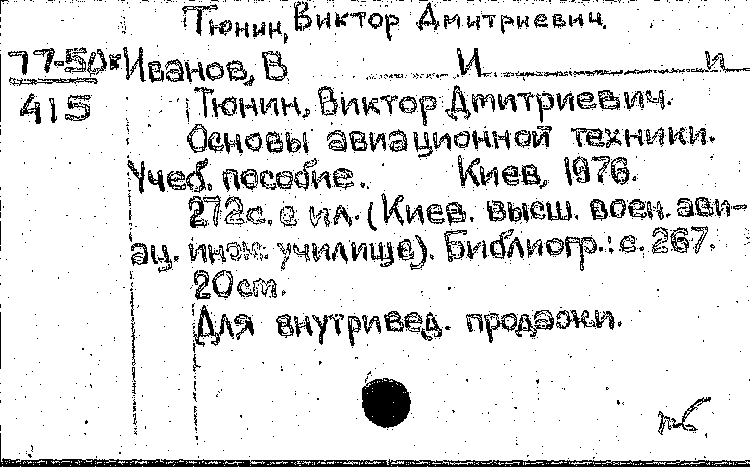 Тюнин, Виктор Дмитриевич.
77-50к Иванов, В И и
415 Тюнин, Виктор Дмитриевич.
Основы авиационной техники.
Учеб. пособие. Киев, 1976.
272с. с ил. (Киев. высш. воен. ави-
ац. инж. училище). Библиогр.: с. 267.
20 см.
Для внутривед. продажи.